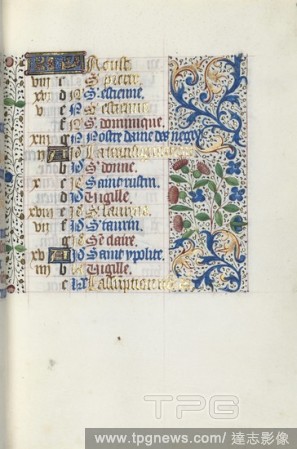 KL Aoust
viii c S. pierre
xvi d S. estienne
v e S. estienne
f S. dominique
xiii g Nostre dame des neges
S. donne
xi c Saint iustin
d Vigille
xviii e S. laurens
vii f S. taurin
g Ste claire
xv A Saint ypolite
iiii b Vigille
c Lassumption
TPG
www.tpgnews.com/ 達志影像